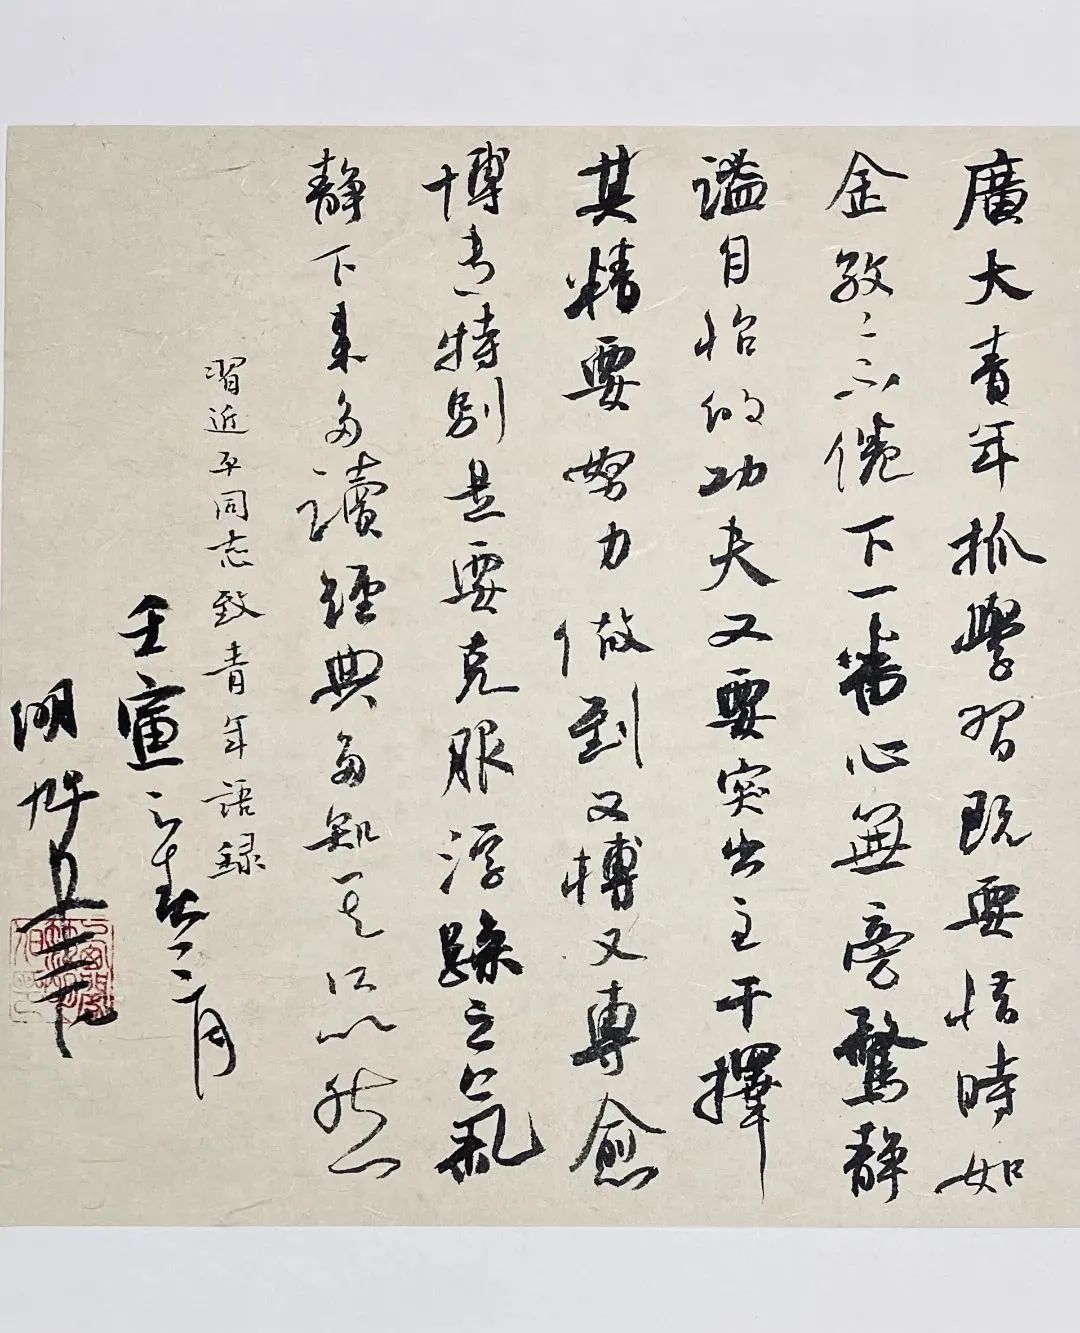 廣大青年抓學習既要惜時如
金孜〻不倦下一番心無旁騖靜
謐自怡的功夫又要突出主干擇
其精要努力做到又博又專愈
博愈特別是要克服浮躁之氣
靜下來多讀經典多知其所以然
習近平同志致青年語録
壬寅之春二月